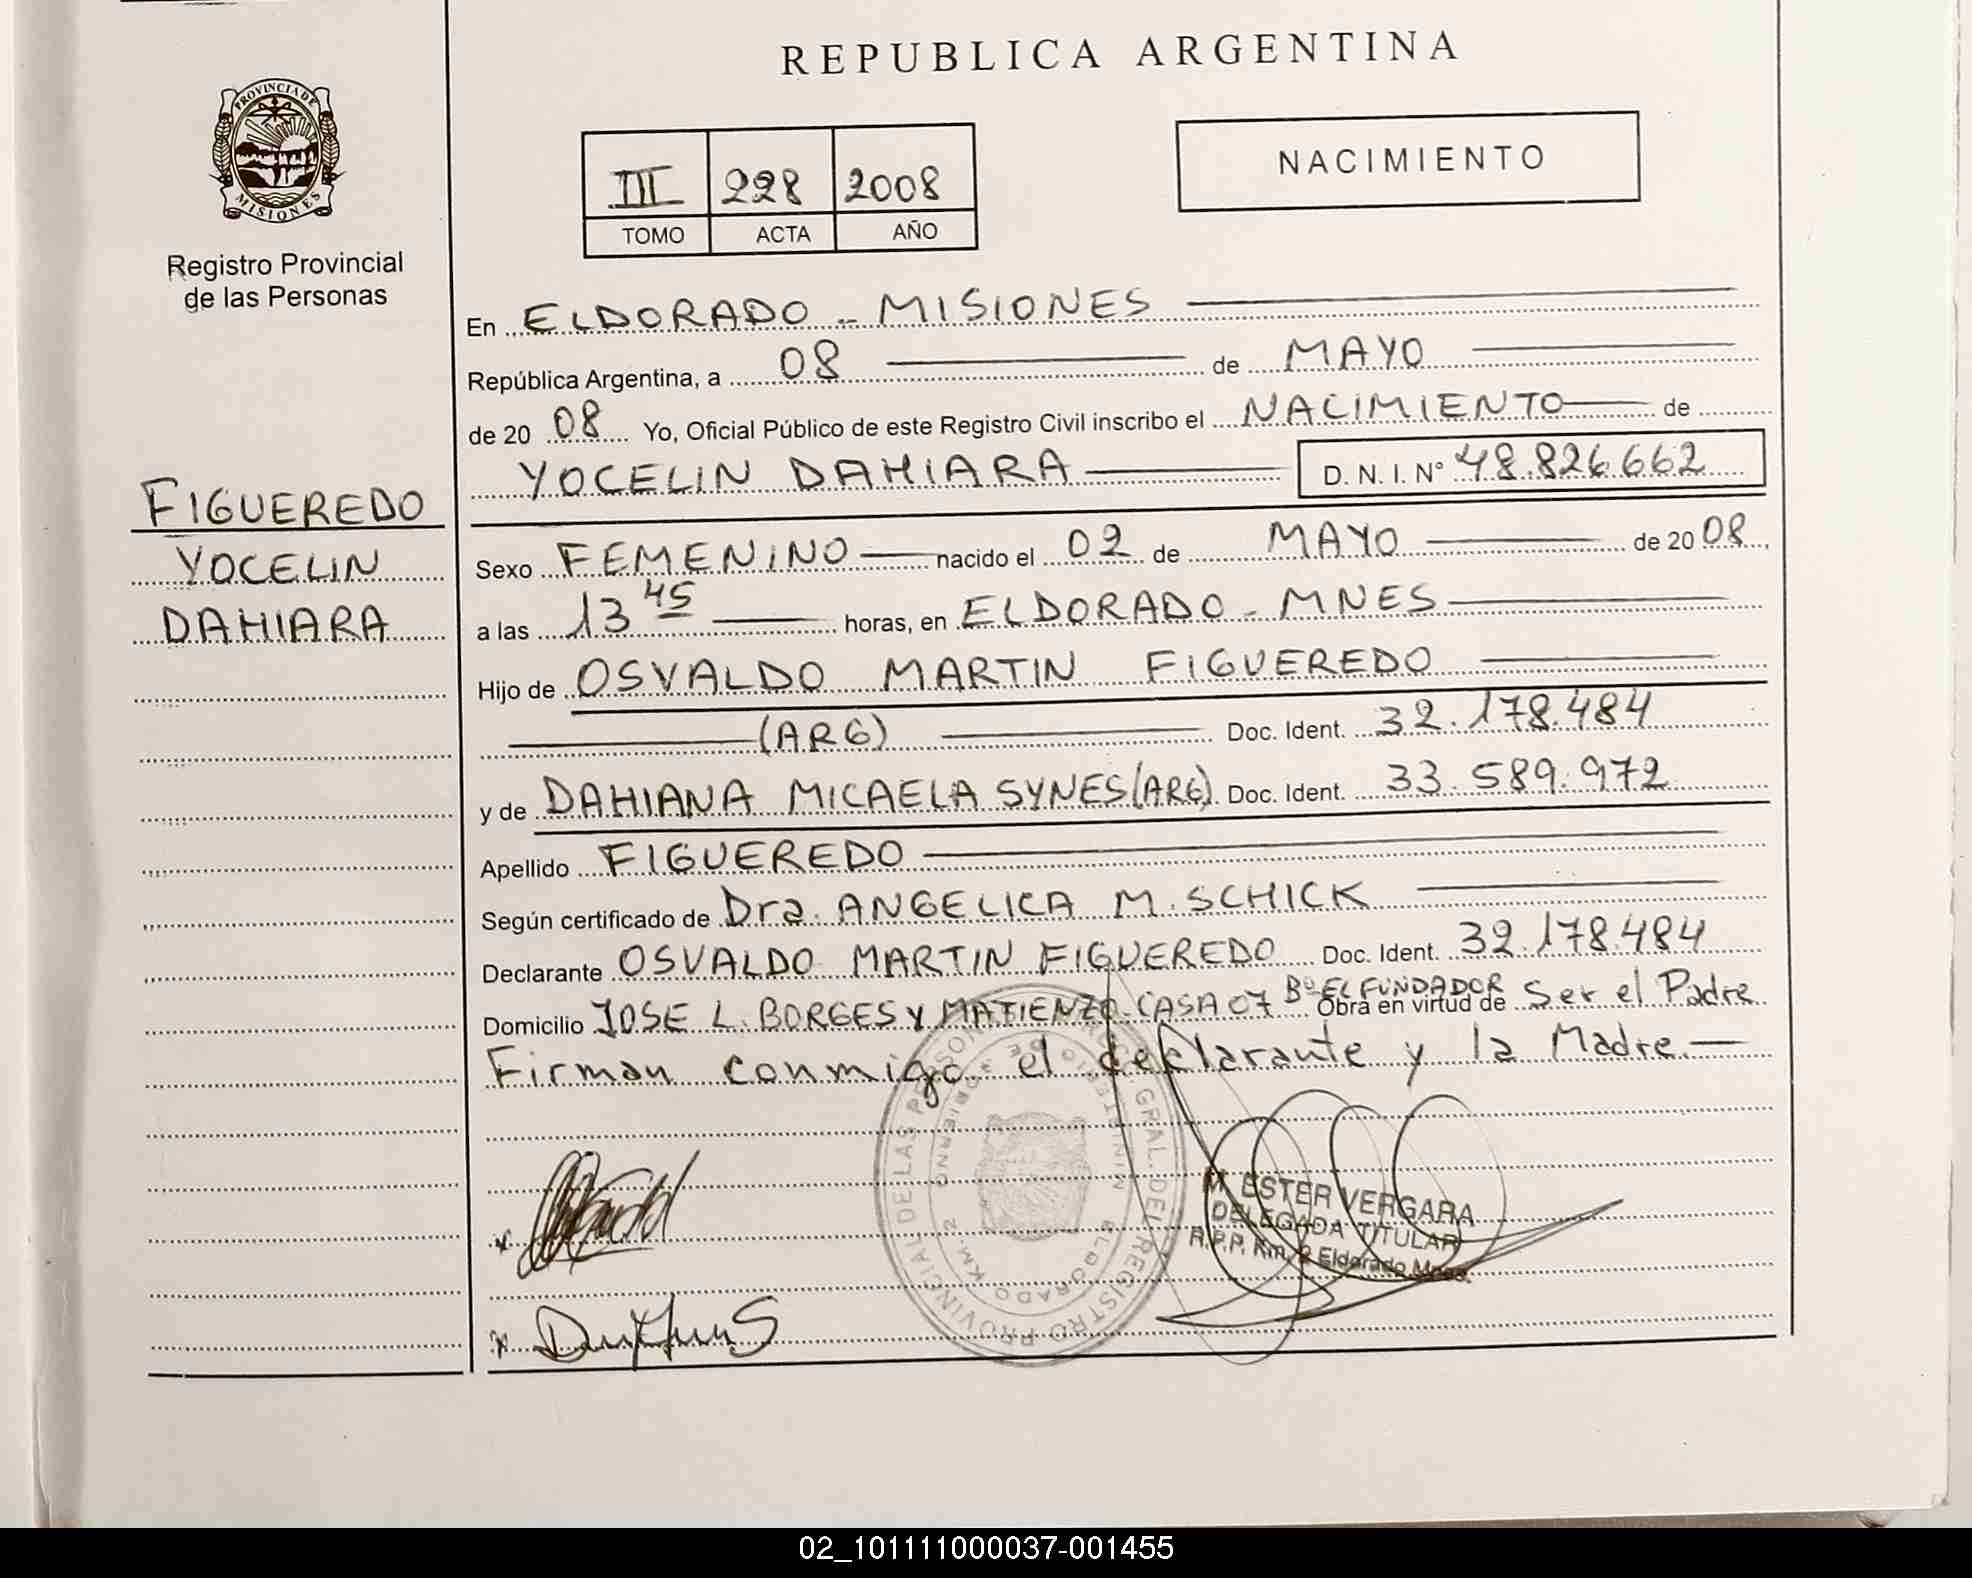 REPUBLICA ARGENTINA
PROVINCIA DE
MISIONES
Registro Provincial
de las Personas
III 228 2008
TOMO ACTA AÑO
NACIMIENTO
FIGUEREDO
YOCELIN
DAHIARA
En ELDORADO - MISIONES
República Argentina, a 08 de MAYO
de 20 08 Yo, Oficial Público de este Registro Civil inscribo el NACIMIENTO de
YOCELIN DAHIARA D. N. I. N° 48.826.662
Sexo FEMENINO nacido el 02 de MAYO de 20 08,
a las 13 45 horas, en ELDORADO - MNES
Hijo de OSVALDO MARTIN FIGUEREDO
(ARG) Doc. Ident. 32.178.484
y de DAHIANA MICAELA SYNES (ARG) Doc. Ident. 33.589.972
Apellido FIGUEREDO
Según certificado de Dra. ANGELICA M. SCHICK
Declarante OSVALDO MARTIN FIGUEREDO Doc. Ident. 32.178.484
Domicilio JOSE L. BORGES Y MATIENZO CASA 07 Bº EL FUNDADOR Obra en virtud de Ser el Padre
Firman conmigo el declarante y la Madre.
GRAL. DEL REGISTRO PROVINCIAL DE LAS
MINISTERIO DE GOBIERNO
ELDORADO KM. 2
M. ESTER VERGARA
DELEGADA TITULAR
R.P.P. Km. 2 Eldorado Mnes.
02_101111000037-001455